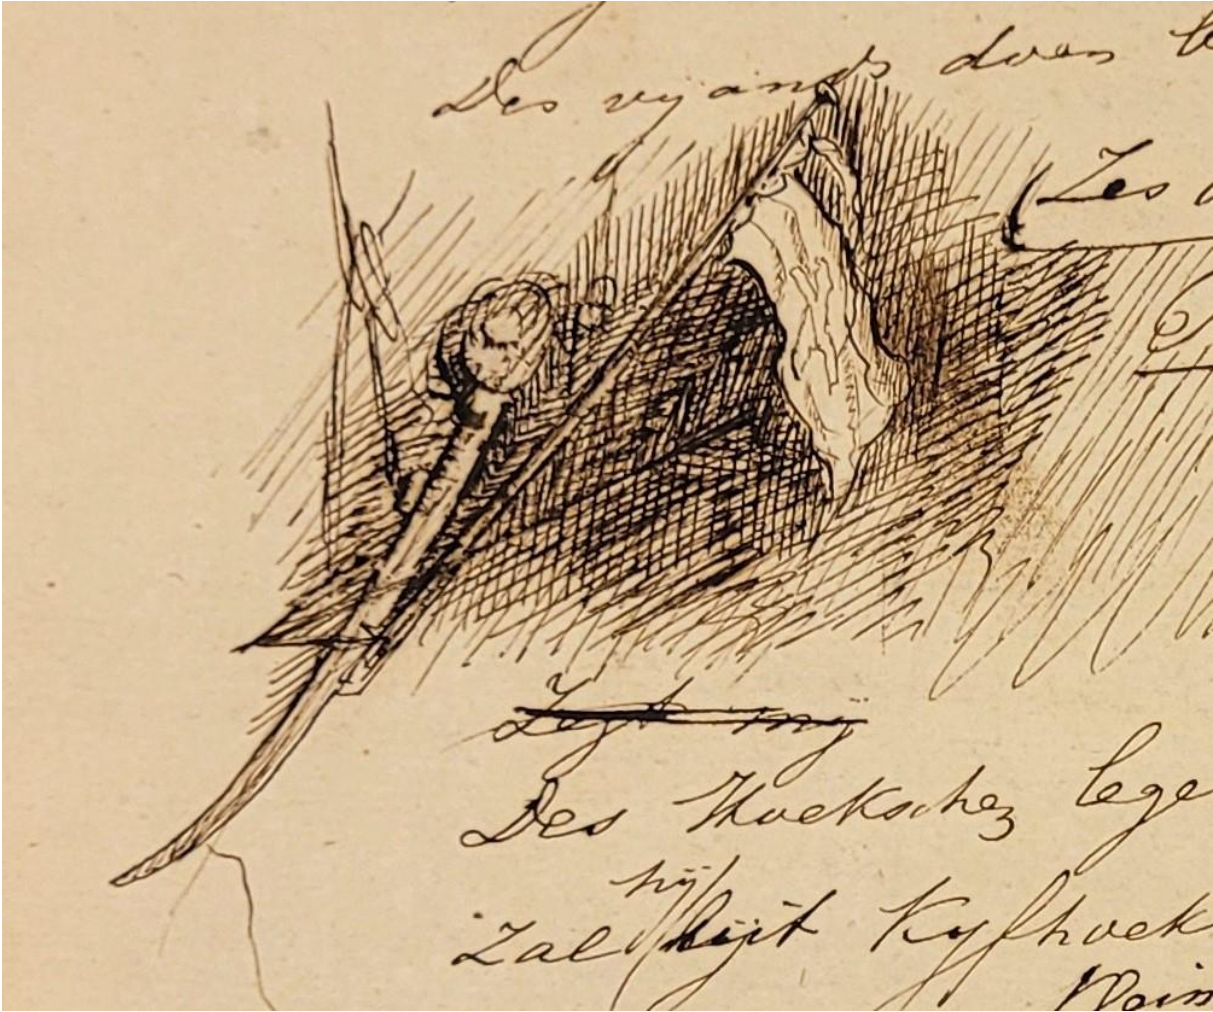 Des vyands doen
Zes
Zegt my
Des Hoeksches lege
hij
Zal lijit Kyfhoek